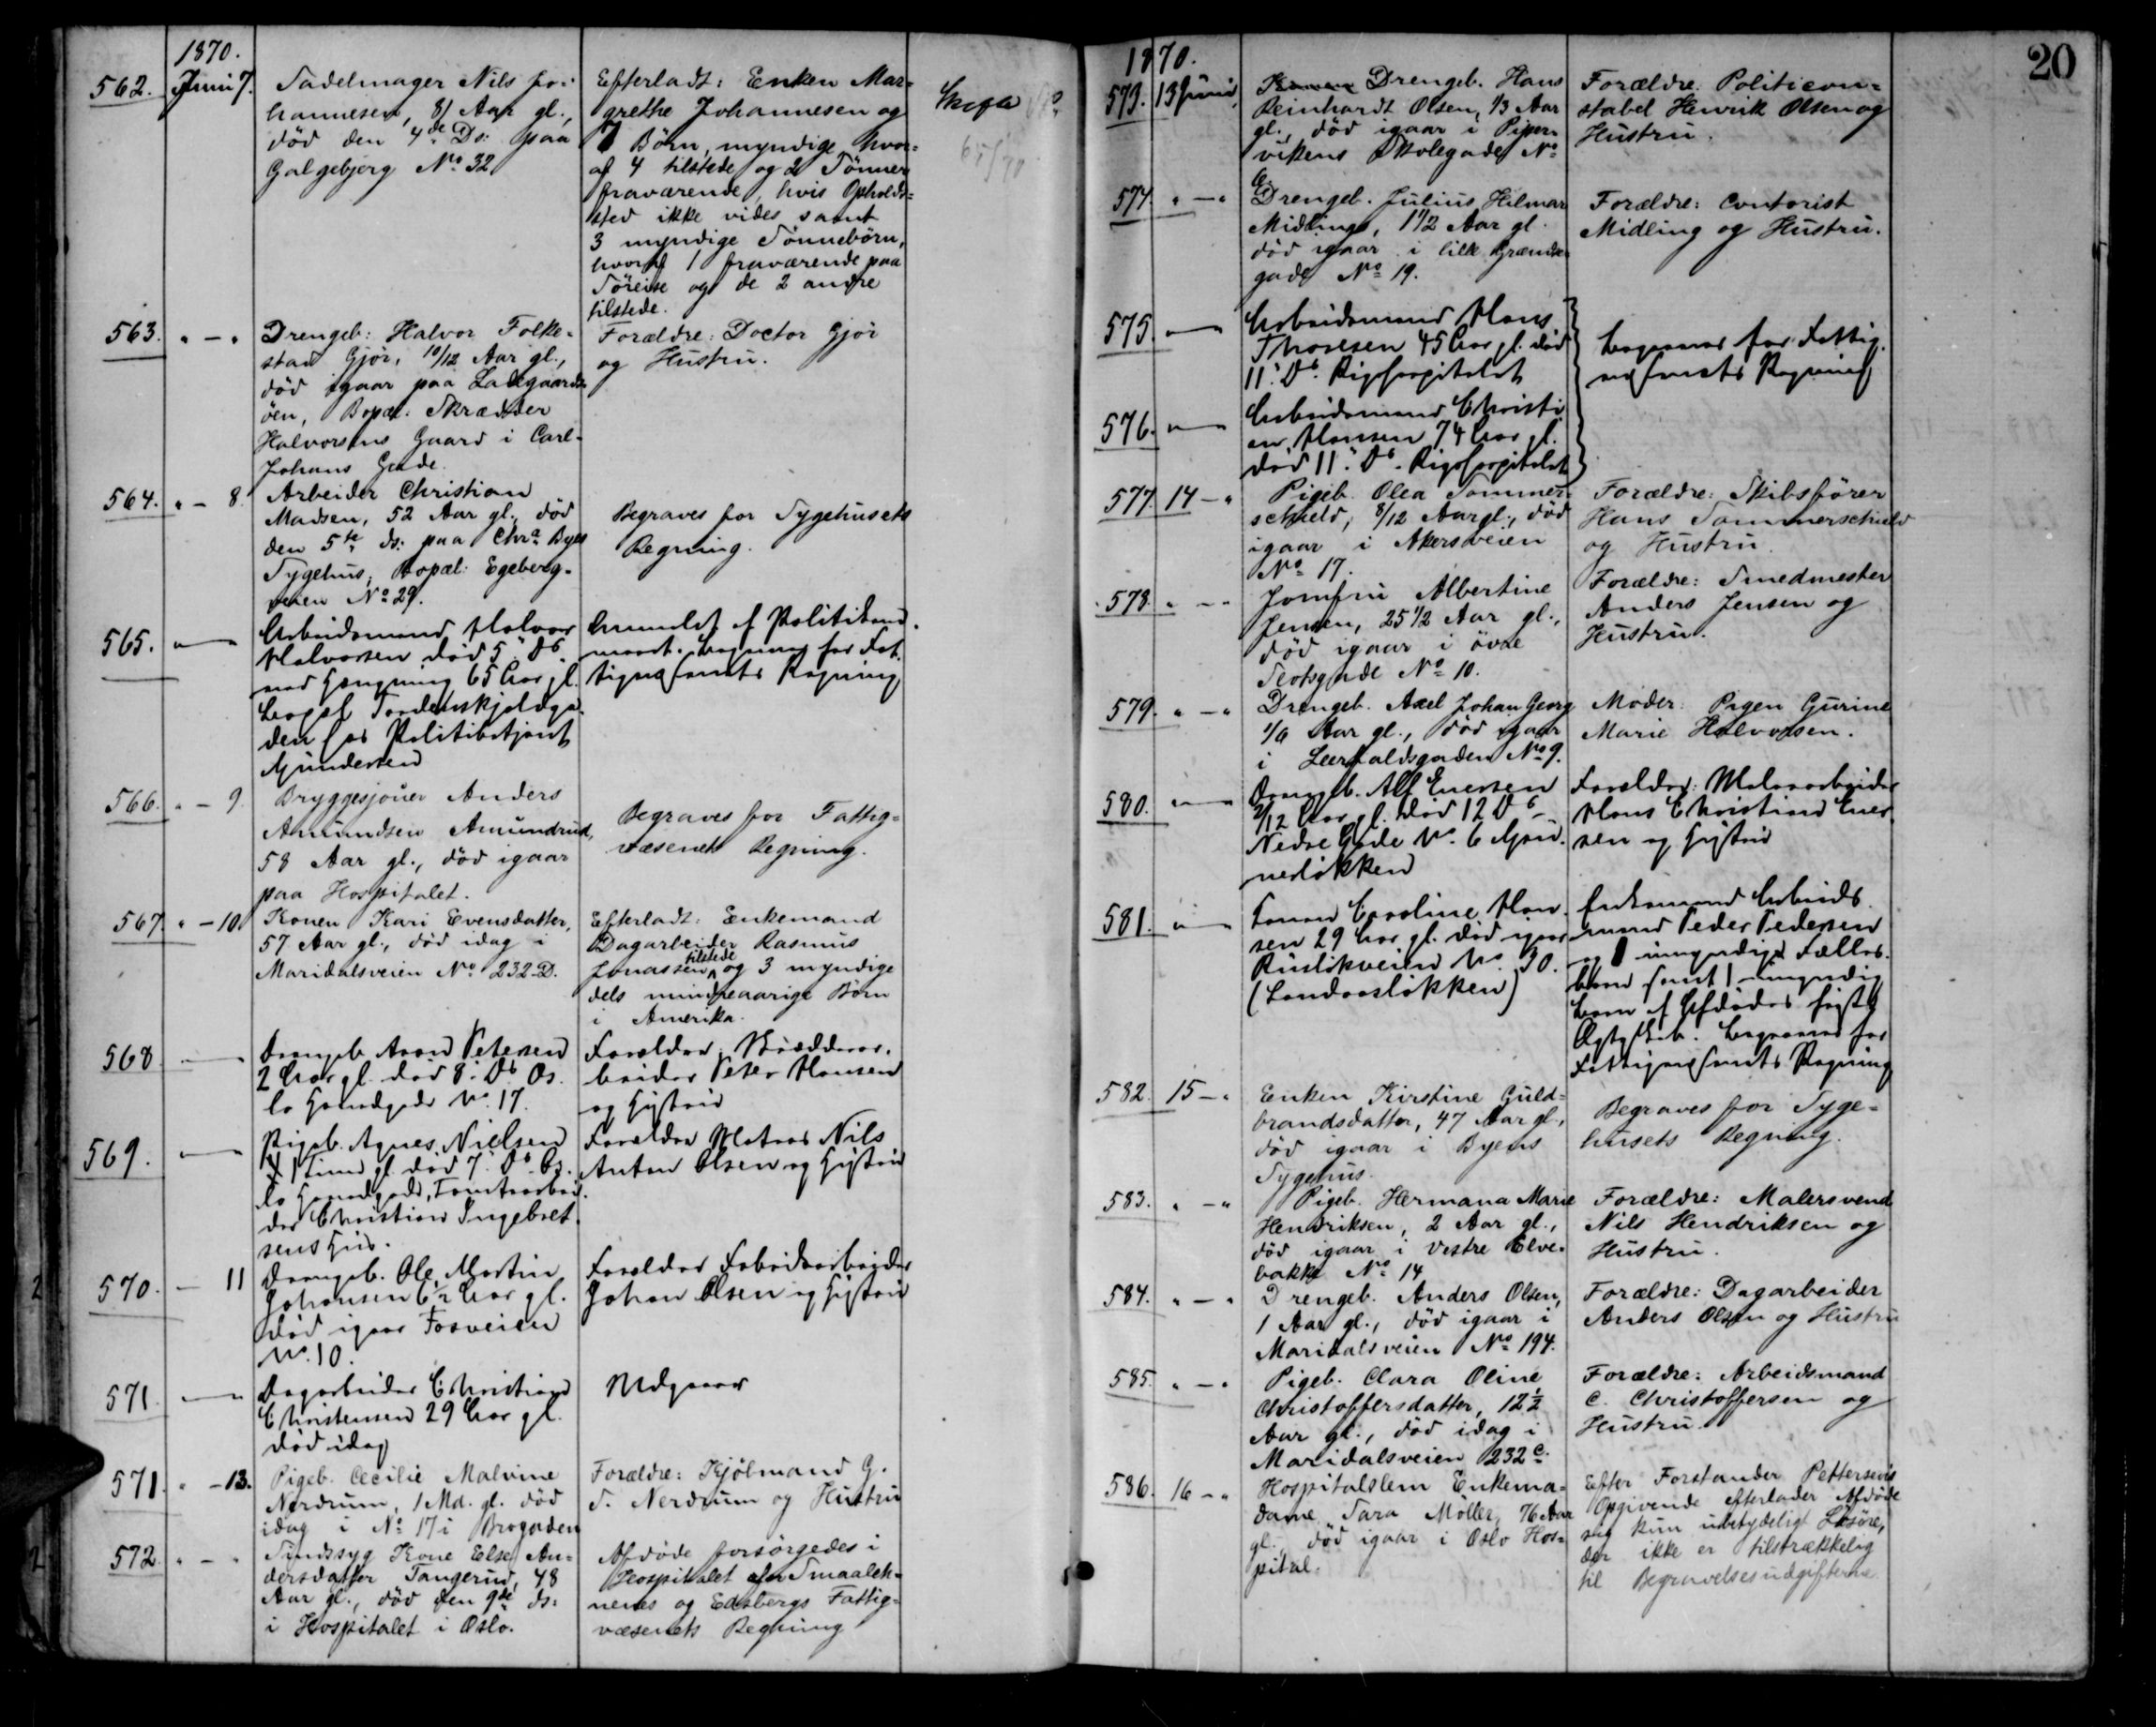 1870.
562. Juni 7. Sadelmager Nils Jo-
hannesen, 81 Aar gl.,
död den 4de Ds: paa
Galgebjerg No 32
Efterladt: Enken Mar-
grethe Johannesen og
7 Börn, myndige, hvor-
af 4 tilstede og 2 Sönner
fraværende, hvis Opholds-
sted ikke vides samt
3 myndige Sönnebörn,
hvoraf 1 fraværende paa
Söreise og de 2 andre
tilstede.
65/70
563. " - " Drengeb: Halvor Folke-
stad Gjör, 10/12 Aar gl.,
död igaar paa Ladegaards-
öen, Bopæl: Skrædder
Halvorsens Gaard i Carl-
Johans Gade.
Forældre: Doctor Gjör
og Hustru.
564. " - 8. Arbeider Christian
Madsen, 52 Aar gl., död
den 5te ds: paa Chra Byes
Sygehus, Bopæl: Egeberg-
veien No 29.
Begraves for Sygehusets
Regning.
565. " — Arbeidsmand Halvor
Halvorsen död 5' Ds
ved Hængning 65 Aar gl.
Bopæl Tordenskjoldsga-
den hos Politibetjent
Gundersen
Anmeldt af Politikam-
meret. Begraves for Fat-
tigvæsenets Regning
566. " - 9. Bryggesjouer Anders
Amundsen Amundrud,
58 Aar gl., död igaar
paa Hospitalet.
Begraves for Fattig-
væsenets Regning.
567. " - 10 Konen Kari Evensdatter,
57 Aar gl., död idag i
Maridalsveien No 232-D.
Efterladt: Enkemand
Dagarbeider Rasmus
tilstede
Jonassen og 3 myndige
dels mindreaarige Börn
i Amerika.
568 — Drengeb. Arond Petersen
2 Aar gl. död 8' Ds Os-
lo Hovedgade No. 17.
Forældre: Bræddear-
beider Peter Hansen
og Hustru
569. — Pigeb. Agnes Nielsen
1 Time gl. död 7' Ds Os-
lo Hovedgade, Tomtearbei-
der Christian Ingebret-
sens Hus.
Forældre Matros Nils
Anton Olsen og Hustru
570. — 11 Drengeb. Ole Martin
Johansen 6 1/2 Aar gl.
död igaar Fosveien
No. 10.
Forældre Fabrikarbeider
Johan Olsen og Hustru
571. — Dagarbeider Christian
Christensen 29 Aar gl.
död idag
Udgaaer
571 " - 13. Pigeb. Cecilie Malvine
Nerdrum, 1 Md. gl. död
idag i No 17 i Brogaden
Forældre: Kjölmand G.
S. Nerdrum og Hustru
572. " - " Sindssyg Kone Else An-
dersdatter Tangerud, 48
Aar gl., död den 9de ds:
i Hospitalet i Oslo.
Afdöde forsörgedes i
Hospitalet af Smaaleh-
nenes og Edsbergs Fattig-
væsenets Regning
20
1870.
573. 13 Juni, Drengeb. Hans
Reinhardt Olsen, 1/3 Aar
gl., död igaar i Piper-
vikens Skolegade No
6.
Forældre: Politicon-
stabel Henrik Olsen og
Hustru.
574. " - " Drengeb. Julius Hilmar
Midling, 1 1/2 Aar gl.
död igaar i lille Grændse-
gade No 19.
Forældre: Contorist
Midling og Hustru.
575. — Arbeidsmand Hans
Thoresen 45 Aar gl. död
11' Ds. Rigshospitalet
576. — Arbeidsmand Christi-
an Hansen 74 Aar gl.
död 11' Ds. Rigshospitalet
Begraves for Fattig-
væsenets Regning
577. 14 - " Pigeb. Olea Sommer-
schield, 8/12 Aar gl., död
igaar i Akersveien
No 17.
Forældre: Skibsförer
Hans Sommerschield
og Hustru.
578. " - " Jomfru Albertine
Jensen, 25 1/2 Aar gl.,
död igaar i övre
Slotsgade No 10.
Forældre: Smedmester
Anders Jensen og
Hustru.
579. " - " Drengeb. Axel Johan Georg
1/6 Aar gl., död igaar
i Leerfaldsgaden No 9.
Moder: Pigen Gurine
Marie Halvorsen.
580. " — Drengeb. Alf Enersen
2/12 Aar gl. död 12 Ds
Nedre Gade No. 6 Grü-
nerløkken
Forældre: Malerarbeider
Hans Christian Ener-
sen og Hustru
581. " — Konen Caroline Han-
sen 29 Aar gl. död igaar
Rusløkveien No. 30.
(Landaasløkken)
Enkemand Arbeids-
mand Peder Pedersen
og 1 umyndigt Fælles-
barn samt 1 umyndig
Barn af Afdödes förste
Ægteskab. Begraves for
Fattigvæsenets Regning
582. 15 - " Enken Kirstine Guld-
brandsdatter, 47 Aar gl.,
död igaar i Byens
Sygehus.
Begraves for Syge-
husets Regning.
583. " - " Pigeb. Hermana Marie
Hendriksen, 2 Aar gl.,
död igaar i vestre Elve-
bakke No 14
Forældre: Malersvend
Nils Hendriksen og
Hustru.
584. " - " Drengeb. Anders Olsen,
1 Aar gl., död igaar i
Maridalsveien No 194.
Forældre: Dagarbeider
Anders Olsen og Hustru
585. " - " Pigeb. Clara Oline
Christoffersdatter, 12 1/2
Aar gl., död idag i
Maridalsveien 232 c.
Forældre: Arbeidsmand
C. Christoffersen og
Hustru.
586. 16 - " Hospitalslem Enkema-
dame Sara Möller, 76 Aar
gl., död igaar i Oslo Hos-
pital.
Efter Forstander Pettersens
Opgivende efterlader Afdöde
sig kun ubetydeligt Lösöre,
der ikke er tilstrækkelig
til Begravelsesudgifterne